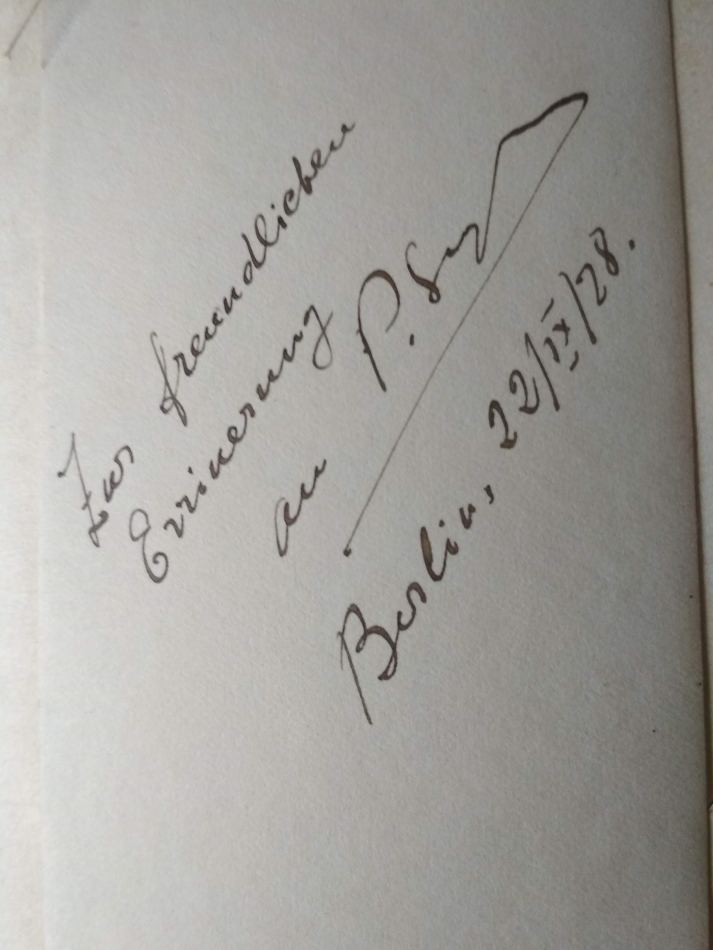 Zur freundlichen
Errinerung
an P.
Berlin, 22/IX/28.